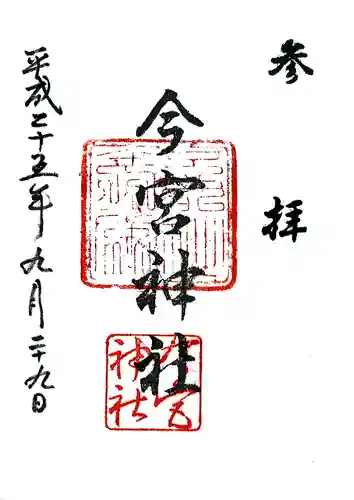 参拝
今宮神社
平成二十五年九月二十九日
今宮神社